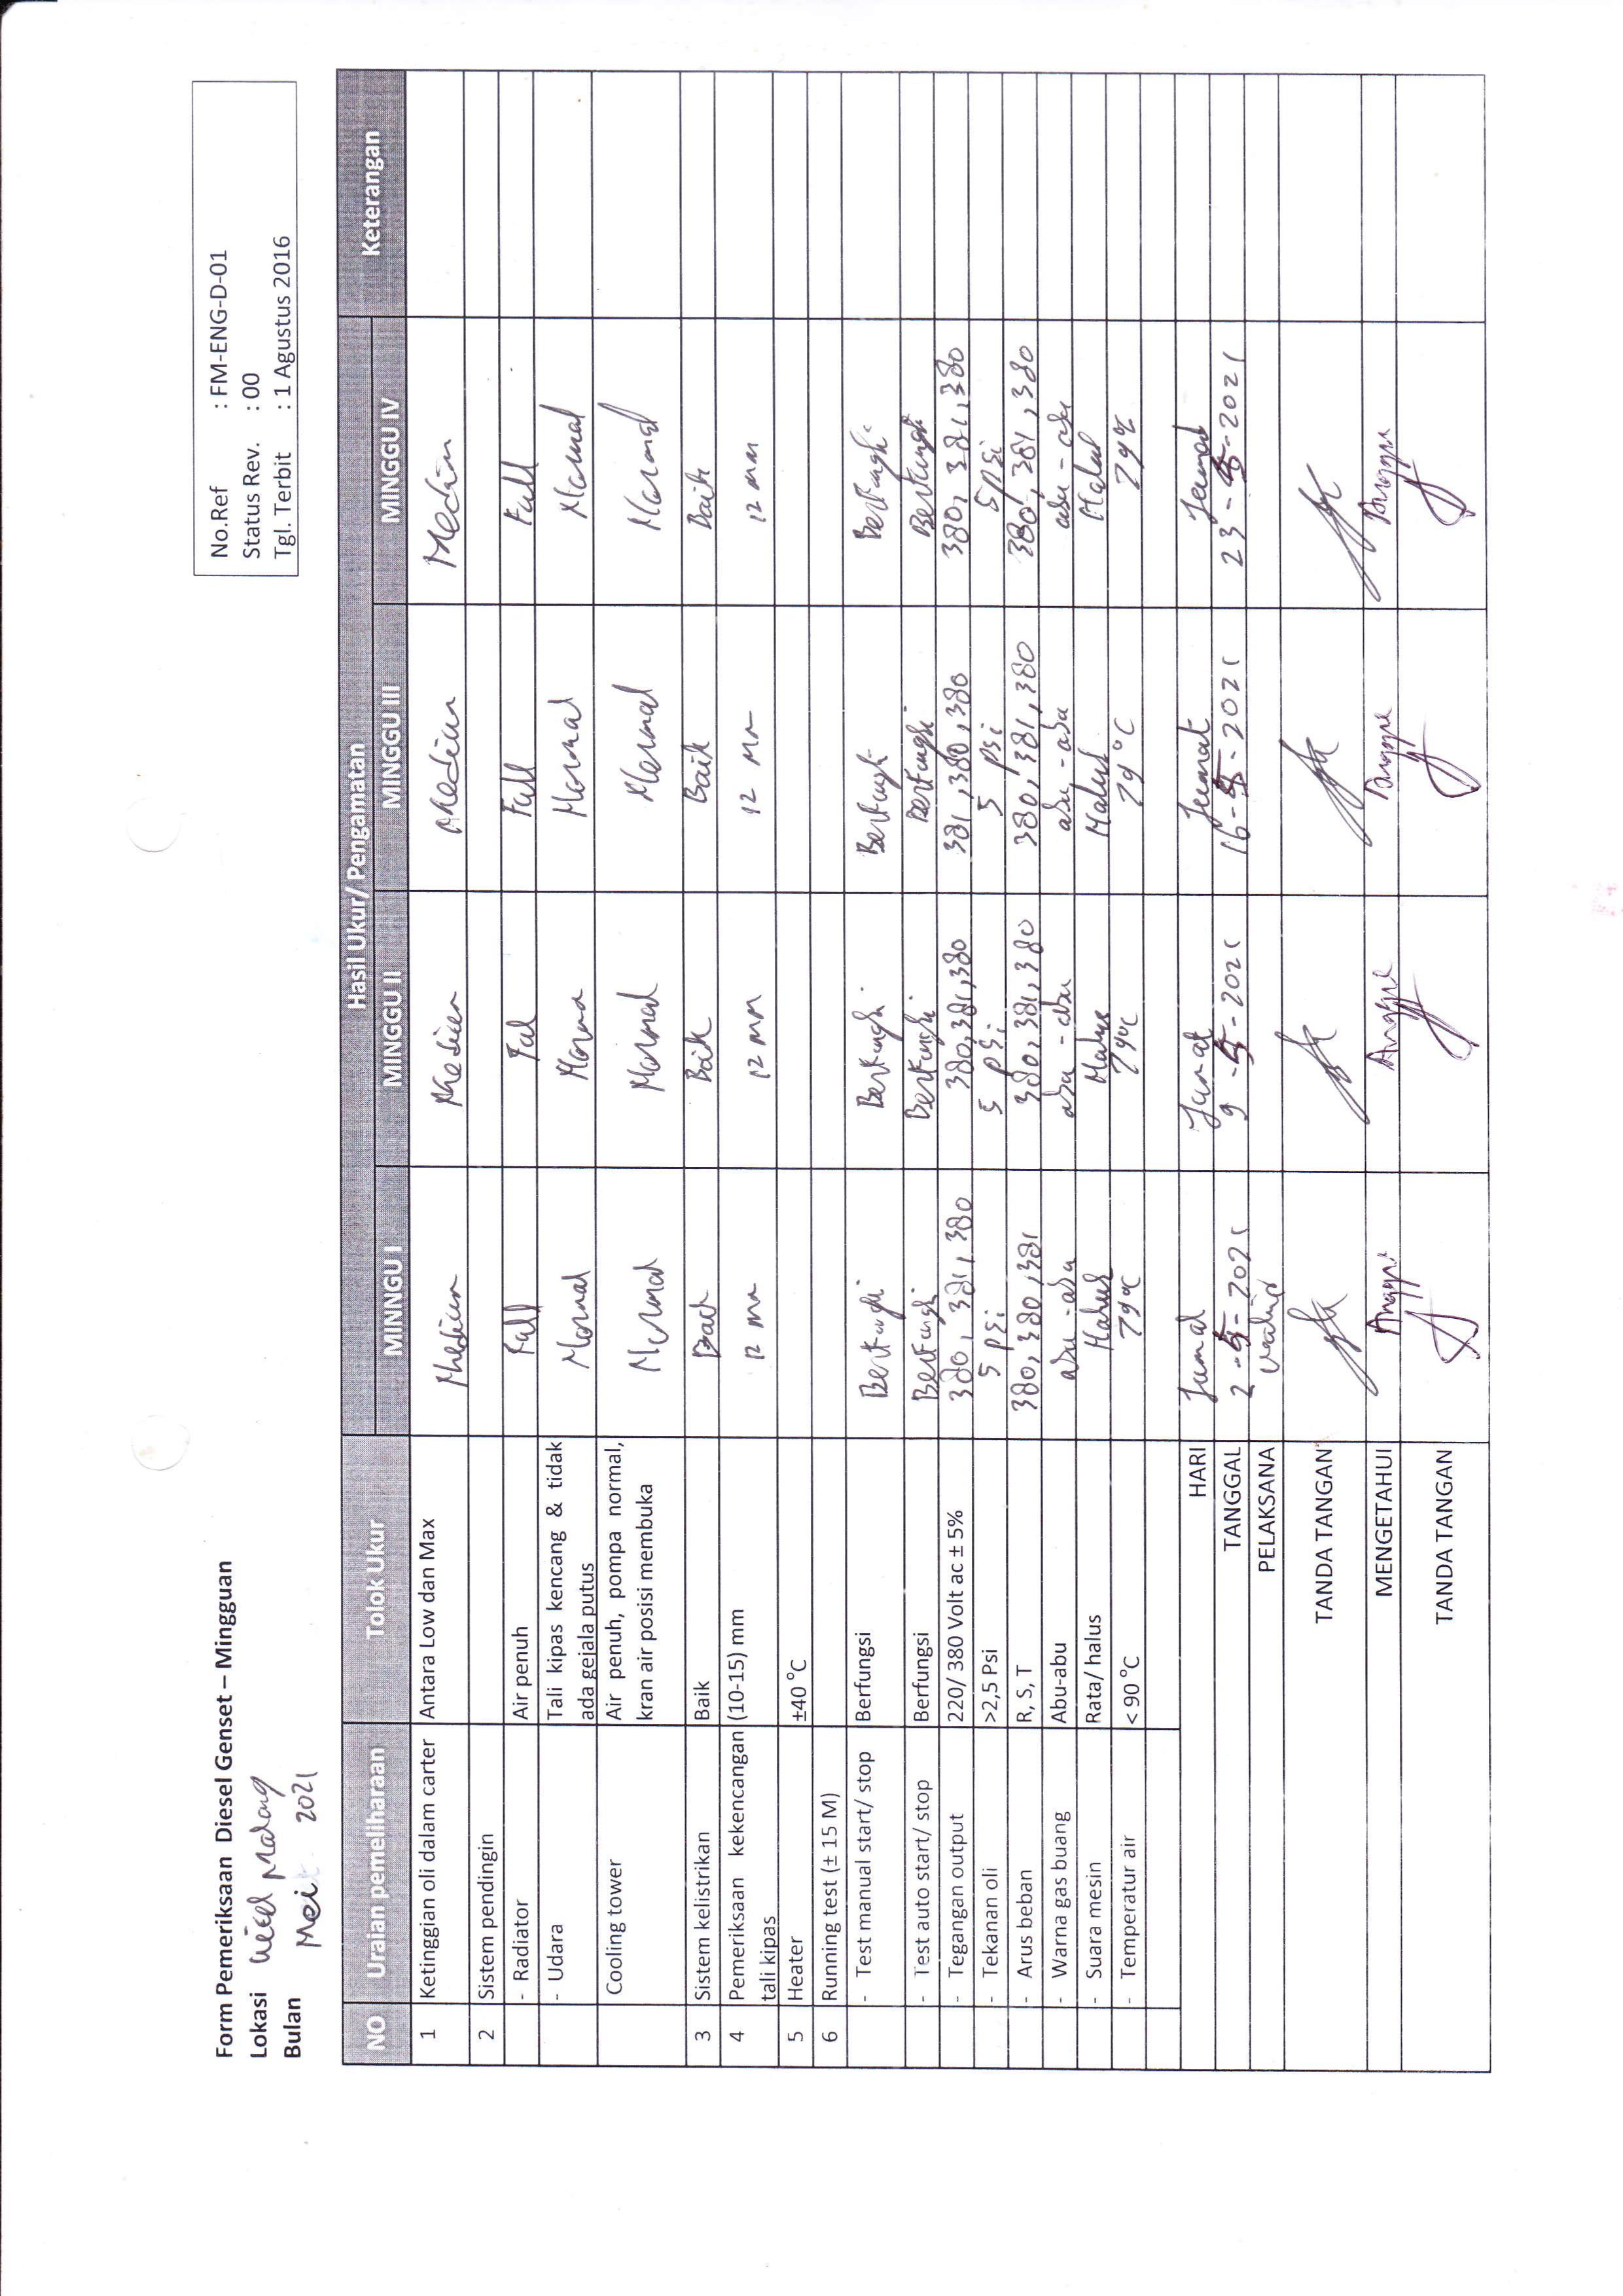 Form Pemeriksaan Diesel Genset – Mingguan
Lokasi Malang
Bulan Mei 2021
No.Ref : FM-ENG-D-01
Status Rev. : 00
Tgl. Terbit : 1 Agustus 2016
NO Uraian pemeliharaan Tolok Ukur Hasil Ukur/ Pengamatan Keterangan
MINNGU I MINGGU II MINGGU III MINGGU IV
1 Ketinggian oli dalam carter Antara Low dan Max Medium Medium Medium Medim
2 Sistem pendingin
- Radiator Air penuh Full Ful Full Full
- Udara Tali kipas kencang & tidak Normal Norma Normal Normal
ada gejala putus
Cooling tower Air penuh, pompa normal, Normal Normal Normal Normal
kran air posisi membuka
3 Sistem kelistrikan Baik Baik Baik Baik Baik
4 Pemeriksaan kekencangan (10-15) mm 12 mm 12 mm 12 mm 12 mm
tali kipas
5 Heater ±40 °C
6 Running test (± 15 M)
- Test manual start/ stop Berfungsi Berfungsi Berfungsi Berfungsi Berfungsi
- Test auto start/ stop Berfungsi Berfungsi Berfungsi Berfungsi Berfungsi
- Tegangan output 220/ 380 Volt ac ± 5% 380, 381, 380 380, 381, 380 381, 380, 380 380, 381, 380
- Tekanan oli >2,5 Psi 5 psi 5 psi 5 psi 5 psi
- Arus beban R, S, T 380, 380, 381 380, 381, 380 380, 381, 380 380, 381, 380
- Warna gas buang Abu-abu abu - abu abu - abu abu - abu abu - abu
- Suara mesin Rata/ halus Halus Halus Halus Halus
- Temperatur air < 90 °C 79°C 79°C 79°C 79°C
HARI Jumat Jumat Jumat Jumat
TANGGAL 2-5-2021 9-5-2021 16-5-2021 23-5-2021
PELAKSANA
TANDA TANGAN
MENGETAHUI Anggri Anggre Anggre Anggre
TANDA TANGAN